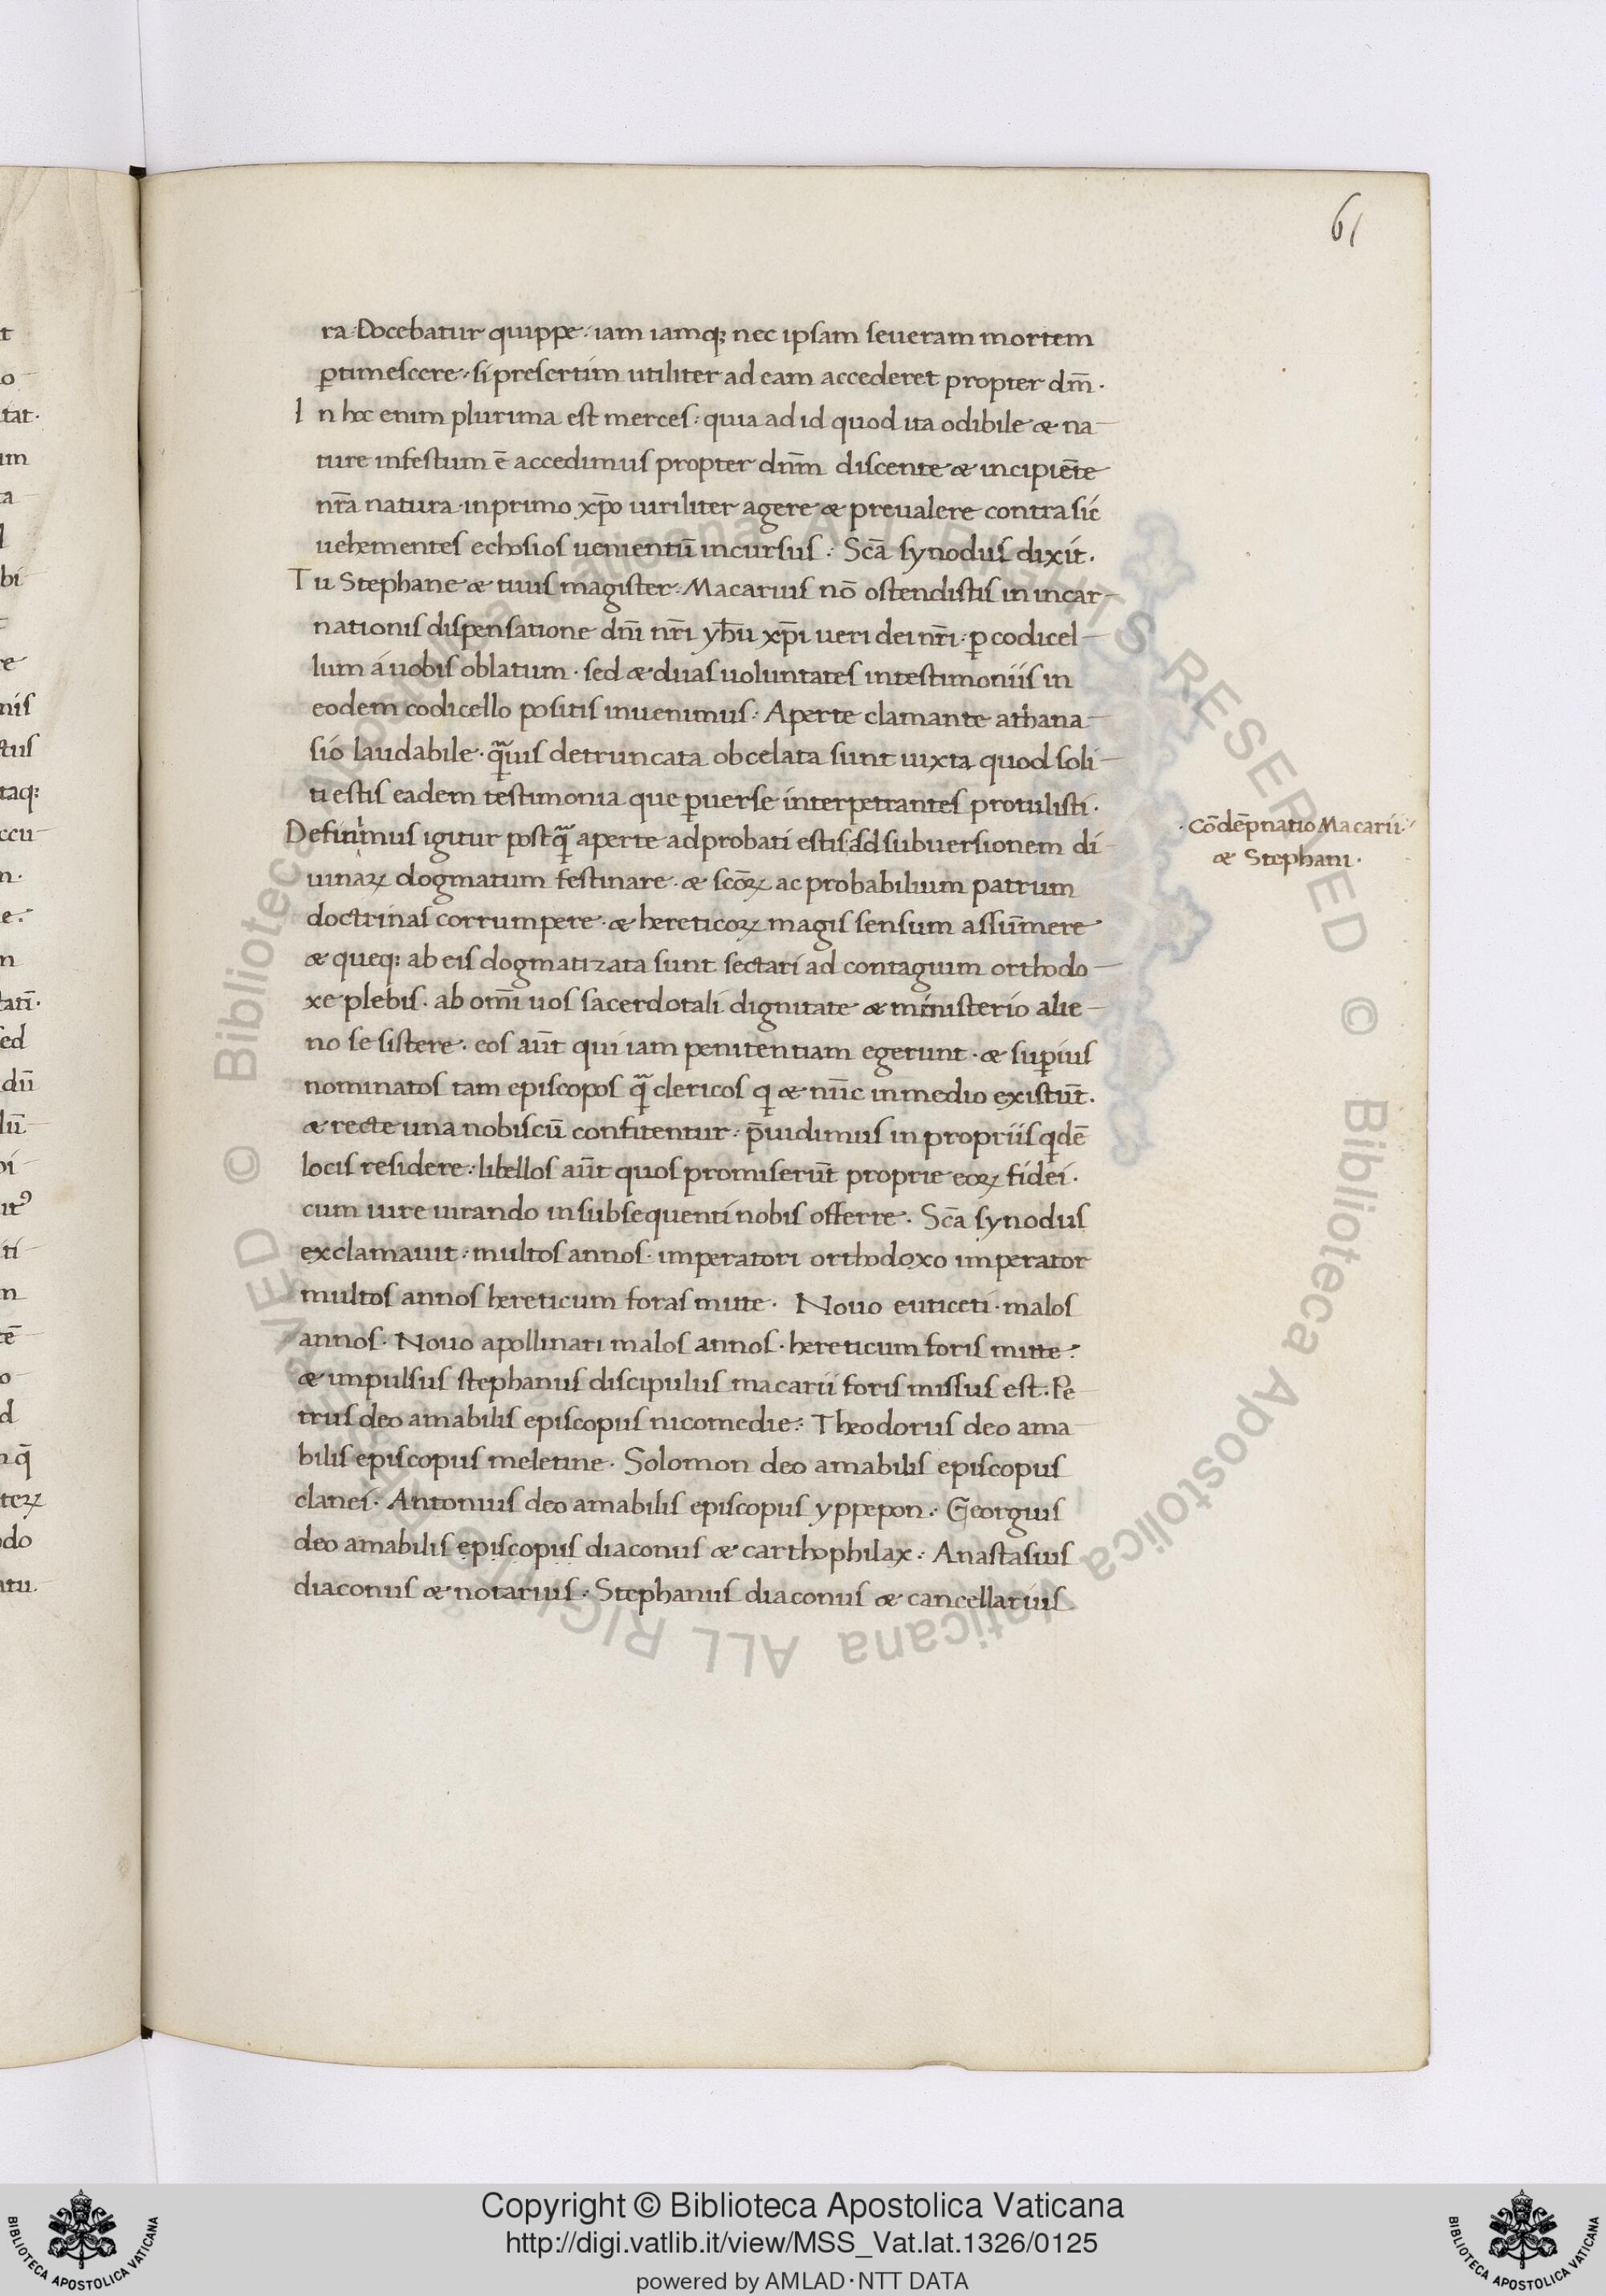 61
ra· Docebatur quippe· iam iamq; nec ipsam seueram mortem
ꝑtimescere· si presertim utiliter ad eam accederet propter dm̄·
In hoc enim plurima est merces· quia ad id quod ita odibile & na-
ture infestum ē accedimus propter dnm̄ discente & incipiēte
nr̄a natura· in primo xp̄o uiriliter agere & preualere contra sic
uehementes echosios uenientū incursus· Scā synodus dixit·
Tu Stephane & tuus magister· Macarius nō ostendistis in incar-
nationis dispensatione dnī nr̄i yħu xp̄i ueri dei nr̄i· ꝑ codicel-
lum á uobis oblatum· sed & duas uoluntates in testimoniis in
eodem codicello positis inuenimus· Aperte clamante athana-
sio laudabile· qͣuis detruncata obcelata sunt iuxta quod soli-
ti estis eadem testimonia que ꝑuerse interpetrantes protulisti·
Definimus igitur postqͣ aperte adprobati estis ad subuersionem di-
uinaꝝ dogmatum festinare· & scōꝝ ac probabilium patrum
doctrinas corrumpere· & hereticoꝝ magis sensum assūmere
& queq: ab eis dogmatizata sunt sectari ad contagium orthodo-
xe plebis· ab om̄i uos sacerdotali dignitate & ministerio alie-
no se sistere· eos aūt qui iam penitentiam egerunt· & suꝑius
nominatos tam episcopos qͣ clericos q & nūc in medio existūt·
& recte una nobiscū confitentur· p̄uidimus in propriis qdē
locis residere· libellos aūt quos promiserūt proprie eoꝝ fidei·
cum iure iurando in subsequenti nobis offerre· Scā synodus
exclamauit· multos annos· imperatori orthodoxo imperator
multos annos hereticum foras mitte· Nouo euticeti· malos
annos· Nouo apollinari malos annos· hereticum foris mitte·
& impulsus stephanus discipulus macarii foris missus est· Pe-
trus deo amabilis episcopus nicomedie· Theodorus deo ama-
bilis episcopus meletine· Solomon deo amabilis episcopus
clanei· Antonius deo amabilis episcopus yppepon· Georgius
deo amabilis episcopus diaconus & carthophilax· Anastasius
diaconus & notarius· Stephanus diaconus & cancellarius
·Cōdēpnatio Macarii·
& Stephani·
Copyright © Biblioteca Apostolica Vaticana
http://digi.vatlib.it/view/MSS_Vat.lat.1326/0125
powered by AMLAD·NTT DATA
BIBLIOTECA APOSTOLICA VATICANA
BIBLIOTECA APOSTOLICA VATICANA
© Biblioteca Apostolica Vaticana ALL RIGHTS RESERVED © Biblioteca Apostolica Vaticana ALL RIGHTS RESERVED